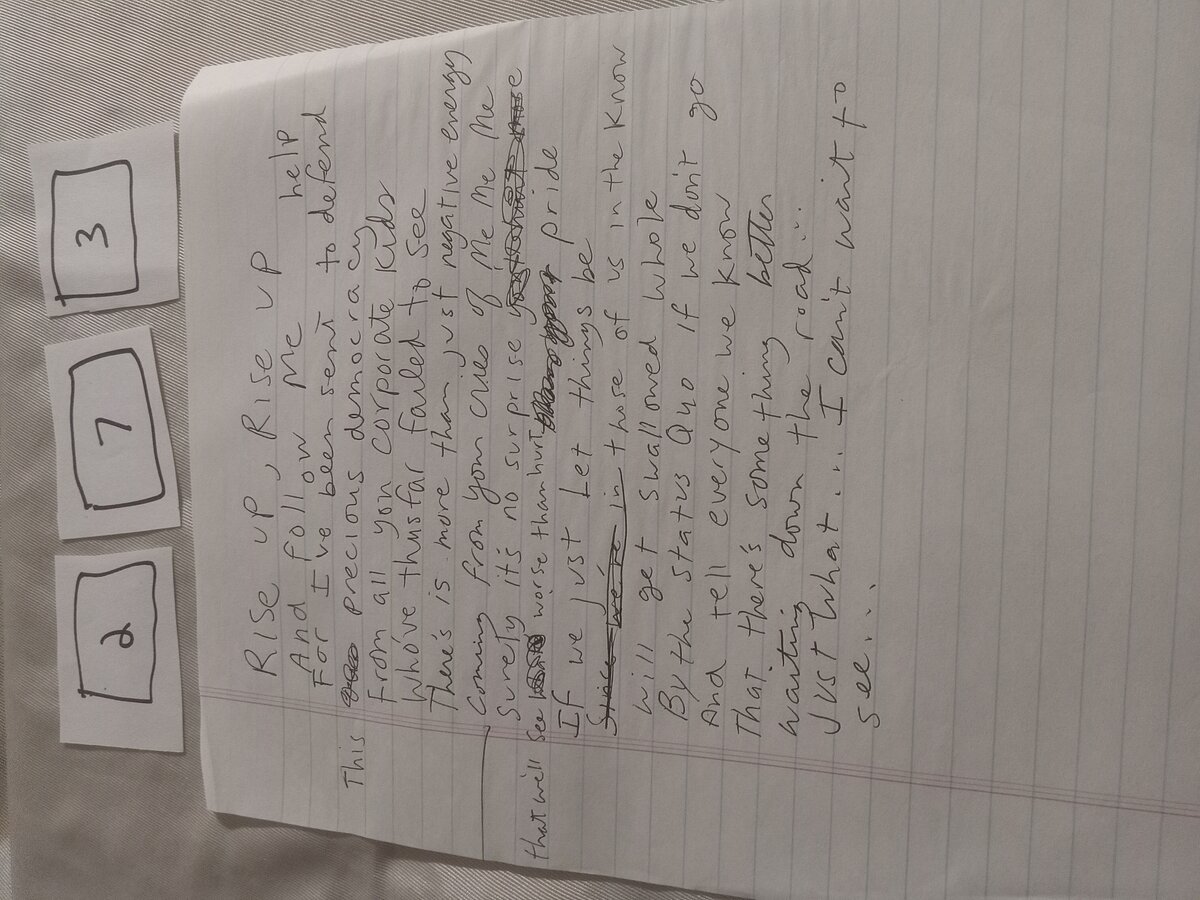 2 7 3
RISE UP, RISE UP
And follow Me
For I've been sent to help defend
This precious democracy
From all you corporate Kids
Who've thusfar failed to see
There's is more than just negative energy
Coming from your cries of Me Me Me
Surely it's no surprise
that we'll see worse than hurt pride
If we just let things be
Since we're in those of us in the Know
will get swallowed whole
By the status Quo if we don't go
And tell everyone we know
That there's something better
waiting down the road...
Just what... I can't want to
see....